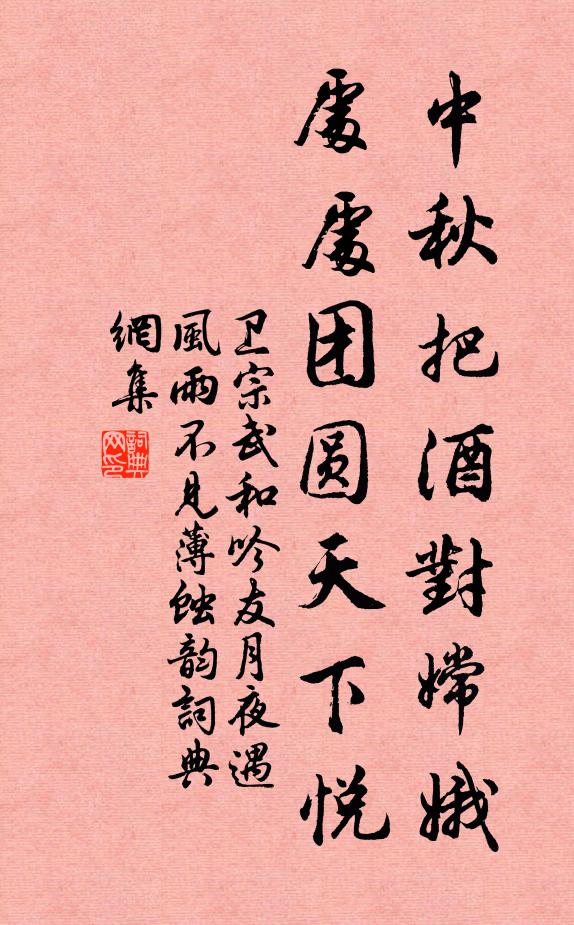 中秋把酒對嫦娥
處處团圆天下悦
卫宗武和吟友月夜遇
風雨不見薄蝕韵詞典
網集
詞典网印